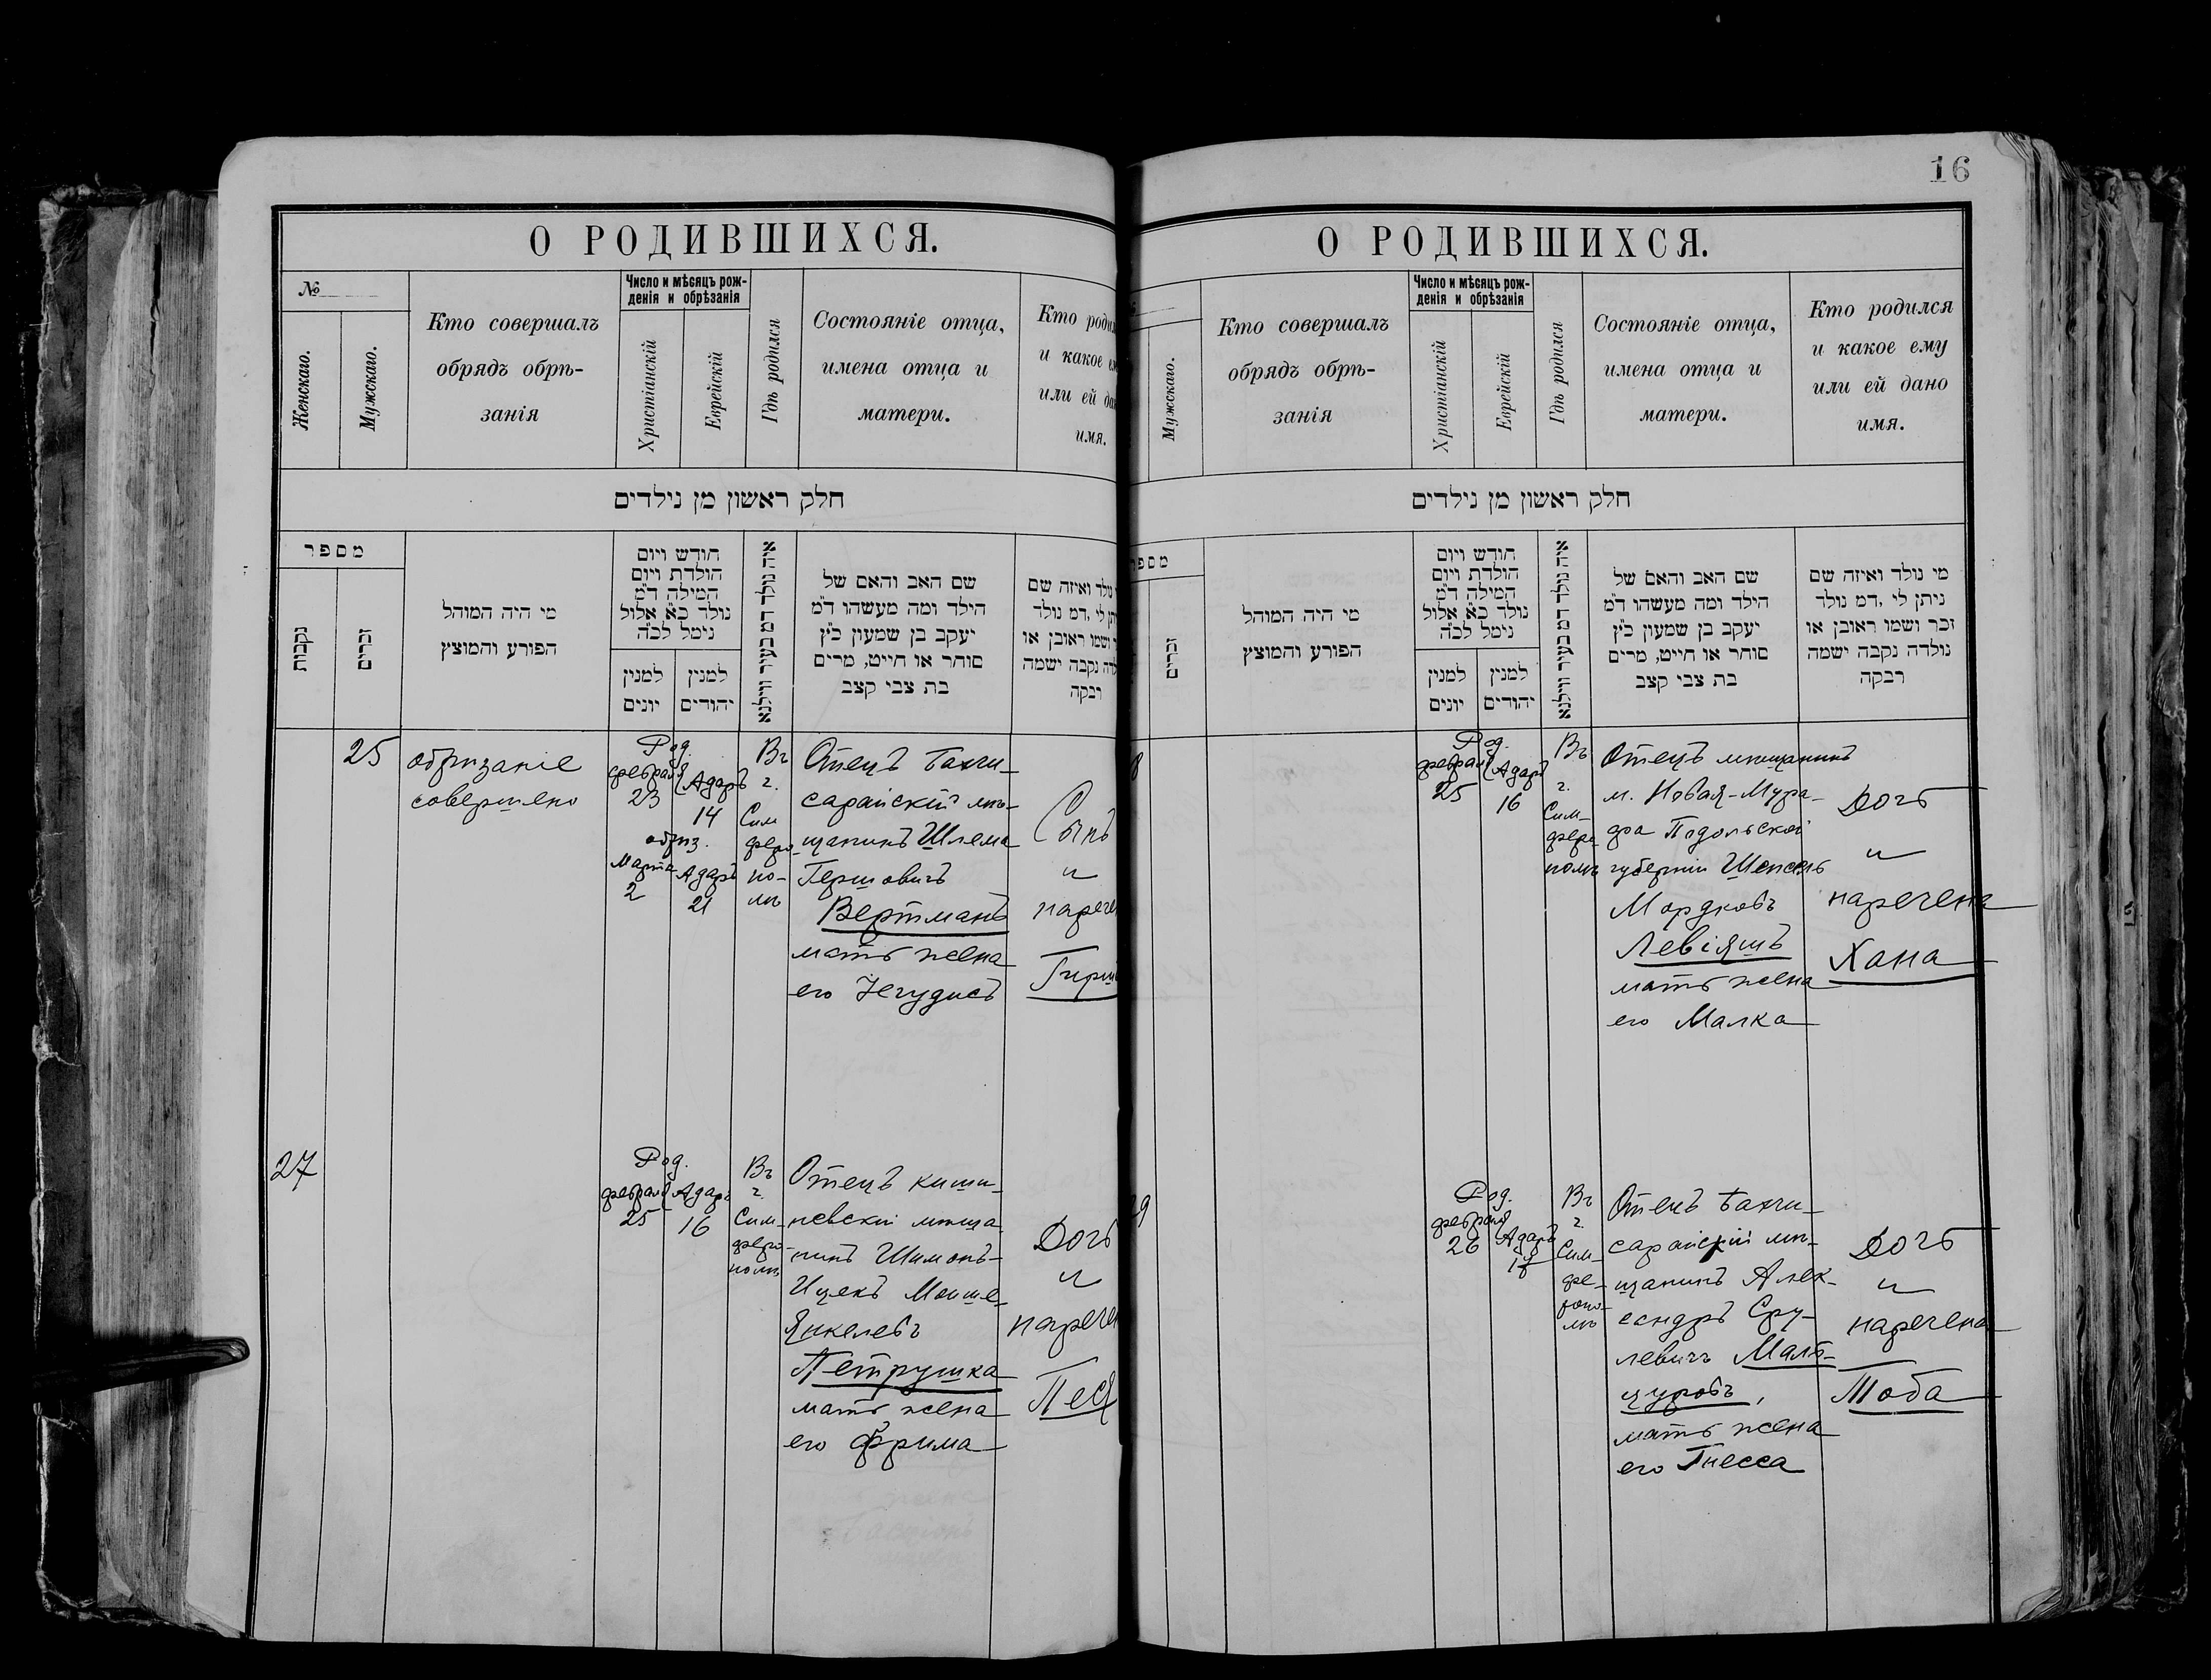 О РОДИВШИХСЯ.
№
Женскаго.
Мужскаго.
Кто совершалъ
обрядъ обрѣ-
занія
Число и мѣсяцъ рож-
денія и обрѣзанія
Христіанскій
Еврейскій
Гдѣ родился
Состояніе отца,
имена отца и
матери.
Кто
и какое
или ей
имя.
חלק ראשון מן נילדים
מספר
נקבות
זכרים
מי היה המוהל
הפורע והמוצץ
חודש ויום
הולדת ויום
המילה ד״מ
נולד כ״א אלול
נימל לכ״ה
למנין
יונים
למנין
יהודים
איה נולד דמ בעיר ווילנא
שם האב והאם של
הילד ומה מעשהו ד״מ
יעקב בן שמעון כ״ץ
סוחר או חייט, מרים
בת צבי קצב
ואיזה שם
לי ,דמ נולד
ושמו ראובן או
נקבה ישמה
רבקה
25
обрѣзаніе
совершено
Род.
февраля
23
Адаръ
14
обрѣз.
Марта
2
Адаръ
21
Въ
г.
Сим
феро-
по-
лѣ
Отецъ Бахчи-
сарайскій мѣ-
щанинъ Шлема
Гершовичъ
Вертманъ
мать жена
его Iегудисъ
Сынъ
и
27
Род.
февраля
25
Адаръ
16
Въ
г.
Сим-
феро-
полѣ
Отецъ киши-
невскій мѣща
нинъ Шимонъ-
Ицекъ Мошe-
Янкелевъ
Петрушка
мать жена
его Фрима
Дочь
и
Песя
16
О РОДИВШИХСЯ.
Мужскаго.
Кто совершалъ
обрядъ обрѣ-
занія
Число и мѣсяцъ рож-
денія и обрѣзанія
Христіанскій
Еврейскій
Гдѣ родился
Состояніе отца,
имена отца и
матери.
Кто родился
и какое ему
или ей дано
имя.
חלק ראשון מן נילדים
זכרים
מי היה המוהל
הפורע והמוצץ
חודש ויום
הולדת ויום
המילה ד״מ
נולד כ״א אלול
נימל לכ״ה
למנין
יונים
למנין
יהודים
איה נולד דמ בעיר ווילנא
שם האב והאם של
הילד ומה מעשהו ד״מ
יעקב בן שמעון כ״ץ
סוחר או חייט, מרים
בת צבי קצב
מי נולד ואיזה שם
ניתן לי ,דמ נולד
זכר ושמו ראובן או
נולדה נקבה ישמה
רבקה
Род.
февраля
25
Адаръ
16
Въ
г.
Сим-
феро
полѣ
Отецъ мѣщанинъ
м. Новая-Мура-
фа Подольской
губерніи Шепсель
Мордковъ
Левіяшъ
мать жена
его Малка
Дочь
и
наречена
Хана
Род.
февраля
26
Адаръ
Въ
г.
Сим-
фе-
ропо-
лѣ
Отецъ Бахчи-
сарайскій мѣ-
щанинъ Алек-
сандръ Сру-
левичъ Маль-
цуровъ,
мать жена
его Гнесса
Дочь
и
наречена
Тоба